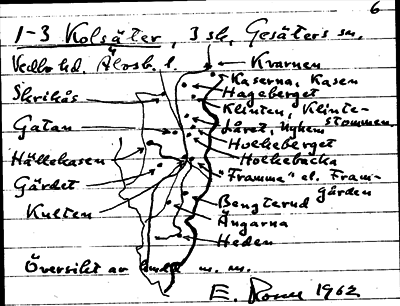 6
1-3 Kolsäter, 3 sk, Gesäters sn.
Vedbo hd. Älvsb. l.
Kvarnen
Kaserna, Kasen
Skrikås
Hageberget
Klinten, Klinte-
stommen
Gatan
Låret, Nyhem
Holkeberget
Hällekasen
Holkebacka
Gärdet
"Framme" el. Fram-
gården
Kulten
Bengterud
Ängarna
Heden
Översikt av m. m.
E. 1962